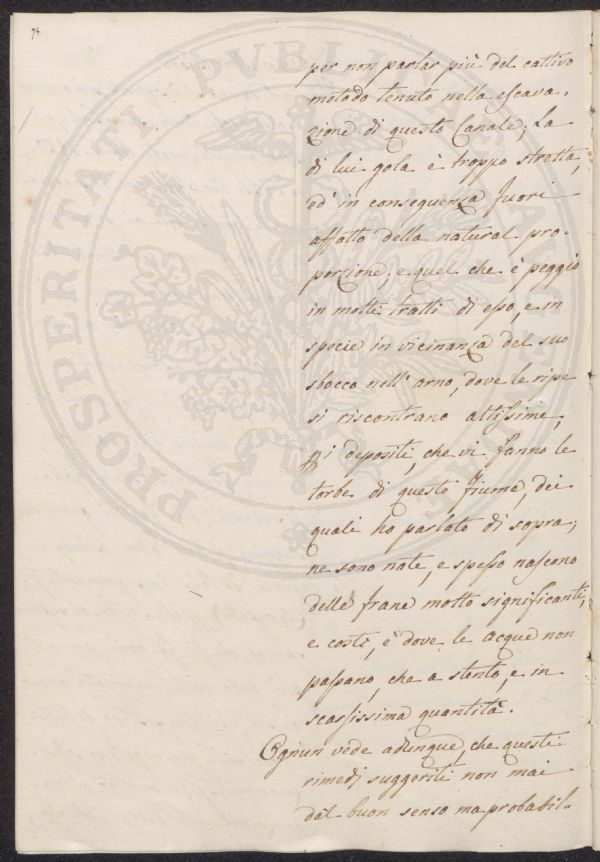 74
per non parlar più del cattivo
metodo tenuto nella escava-
zione di questo Canale; La
di lui gola è troppo stretta,
ed in conseguenza fuori
affatto della natural pro-
porzione; e quel che è peggio
in molti tratti di esso, e in
specie in vicinanza del suo
sbocco nell'arno, dove le ripe
si riscontrano altissime,
p i depositi, che vi fanno le
torbe di questo fiume, dei
quali ho parlato di sopra;
ne sono nate, e spesso nascono
delle frane molto significanti,
e costì, è dove le acque non
passano, che a stento, e in
scarsissima quantità.
Ognun vede adunque, che questi
rimedj suggeriti non mai
dal buon senso ma probabil-
PROSPERITATI PUBLICAE